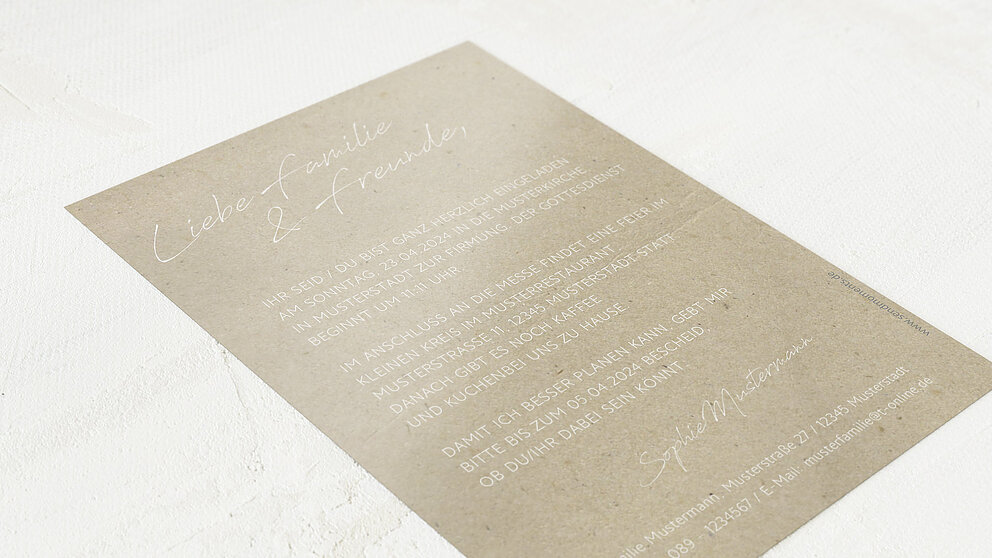 Liebe Familie
& Freunde,
IHR SEID / DU BIST GANZ HERZLICH EINGELADEN
AM SONNTAG, 23.04.2024 IN DIE MUSTERKIRCHE
IN MUSTERSTADT ZUR FIRMUNG. DER GOTTESDIENST
BEGINNT UM 11:11 UHR.
IM ANSCHLUSS AN DIE MESSE FINDET EINE FEIER IM
KLEINEN KREIS IM MUSTERRESTAURANT,
MUSTERSTRASSE 11, 12345 MUSTERSTADT STATT.
DANACH GIBT ES NOCH KAFFEE
UND KUCHENBEI UNS ZU HAUSE.
DAMIT ICH BESSER PLANEN KANN, GEBT MIR
BITTE BIS ZUM 05.04.2024 BESCHEID,
OB DU/IHR DABEI SEIN KÖNNT.
Sophie Mustermann
Mustermann, Musterstraße 27 / 12345 Musterstadt
089 - 1234567 / E-Mail: musterfamilie@t-online.de
www.sendmoments.de